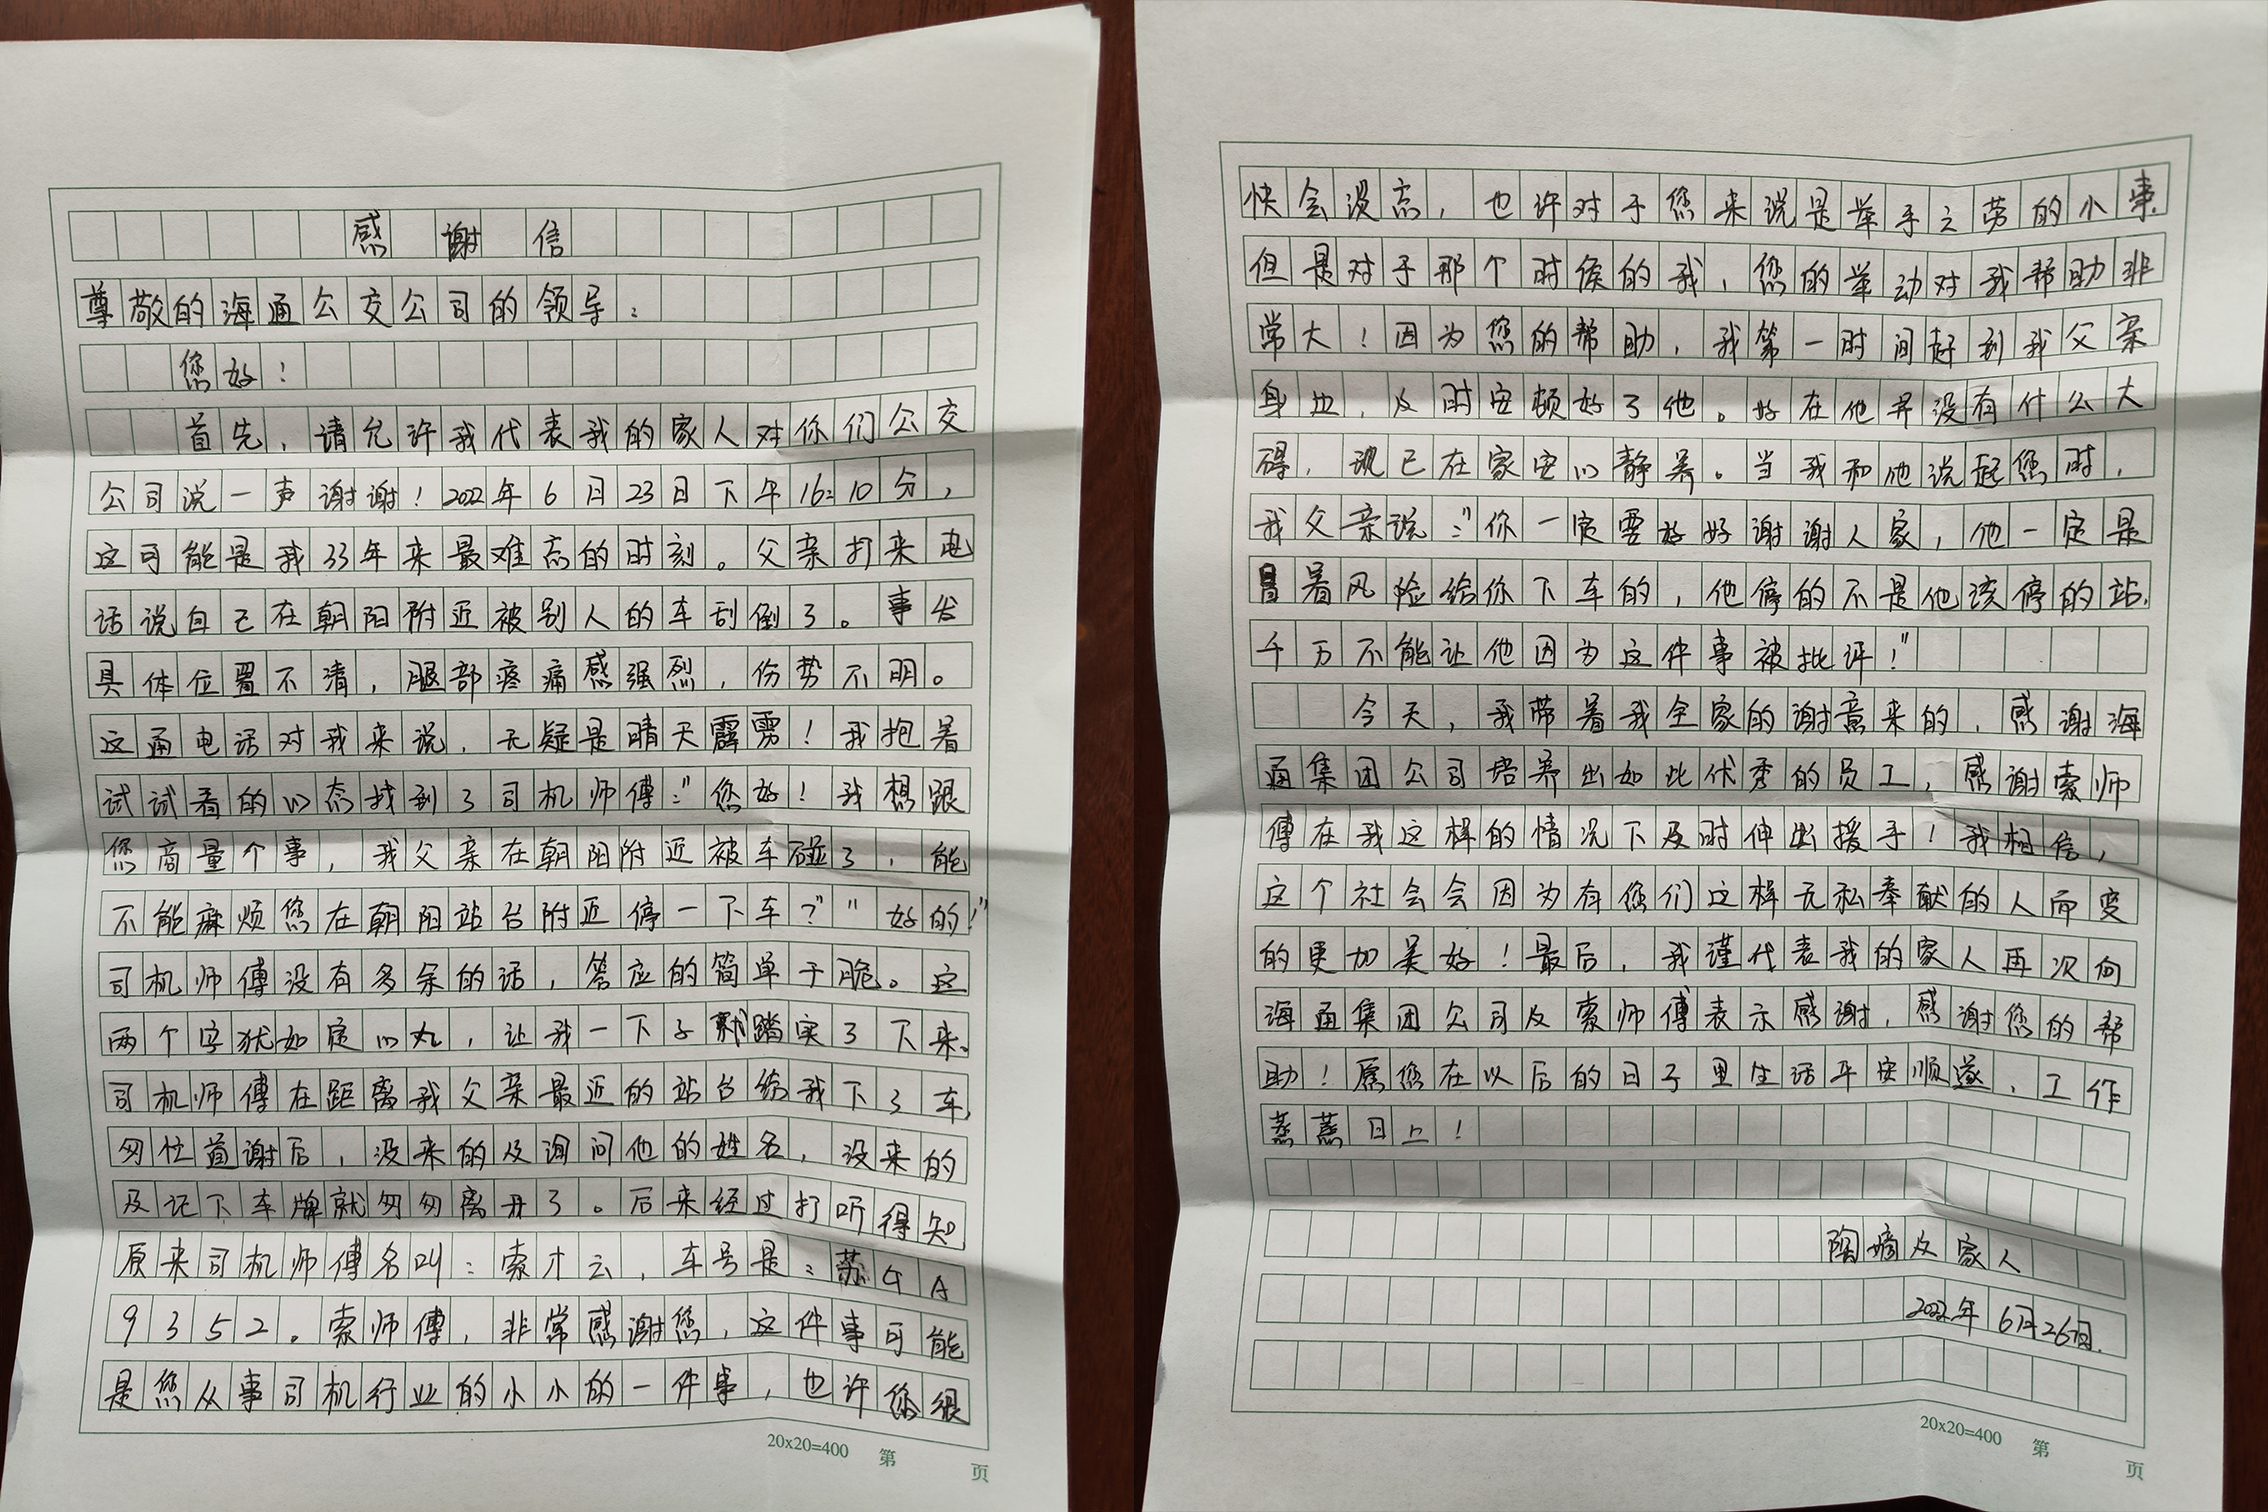 感谢信
尊敬的海通公交公司的领导：
您好！
首先，请允许我代表我的家人对你们公交
公司说一声谢谢！2022年6月23日下午16:10分，
这可能是我33年来最难忘的时刻。父亲打来电
话说自己在朝阳附近被别人的车刮倒了。事发
具体位置不清，腿部疼痛感强烈，伤势不明。
这通电话对我来说，无疑是晴天霹雳！我抱着
试试看的心态找到了司机师傅：“您好！我想跟
您商量个事，我父亲在朝阳附近被车碰了，能
不能麻烦您在朝阳站台附近停一下车？”“好的！”
司机师傅没有多余的话，答应的简单干脆。这
两个字犹如定心丸，让我一下子就踏实了下来。
司机师傅在距离我父亲最近的站台给我下了车，
匆忙道谢后，没来的及询问他的姓名，没来的
及记下车牌就匆匆离开了。后来经过打听得知
原来司机师傅名叫：索才云，车号是：苏GA
9352。索师傅，非常感谢您，这件事可能
是您从事司机行业的小小的一件事，也许您很
快会淡忘，也许对于您来说是举手之劳的小事.
但是对于那个时候的我，您的举动对我帮助非
常大！因为您的帮助，我第一时间赶到我父亲
身边，及时安顿好了他。好在他并没有什么大
碍，现已在家安心静养。当我和他说起您时，
我父亲说：“你一定要好好谢谢人家，他一定是
冒着风险给你下车的，他停的不是他该停的站.
千万不能让他因为这件事被批评！”
今天，我带着我全家的谢意来的，感谢海
通集团公司培养出如此优秀的员工，感谢索师
傅在我这样的情况下及时伸出援手！我相信，
这个社会会因为有您们这样无私奉献的人而变
的更加美好！最后，我谨代表我的家人再次向
海通集团公司及索师傅表示感谢，感谢您的帮
助！愿您在以后的日子里生活平安顺遂，工作
蒸蒸日上！
陶嫡及家人
2022年6月26日.
20x20=400 第 页
20x20=400 第 页